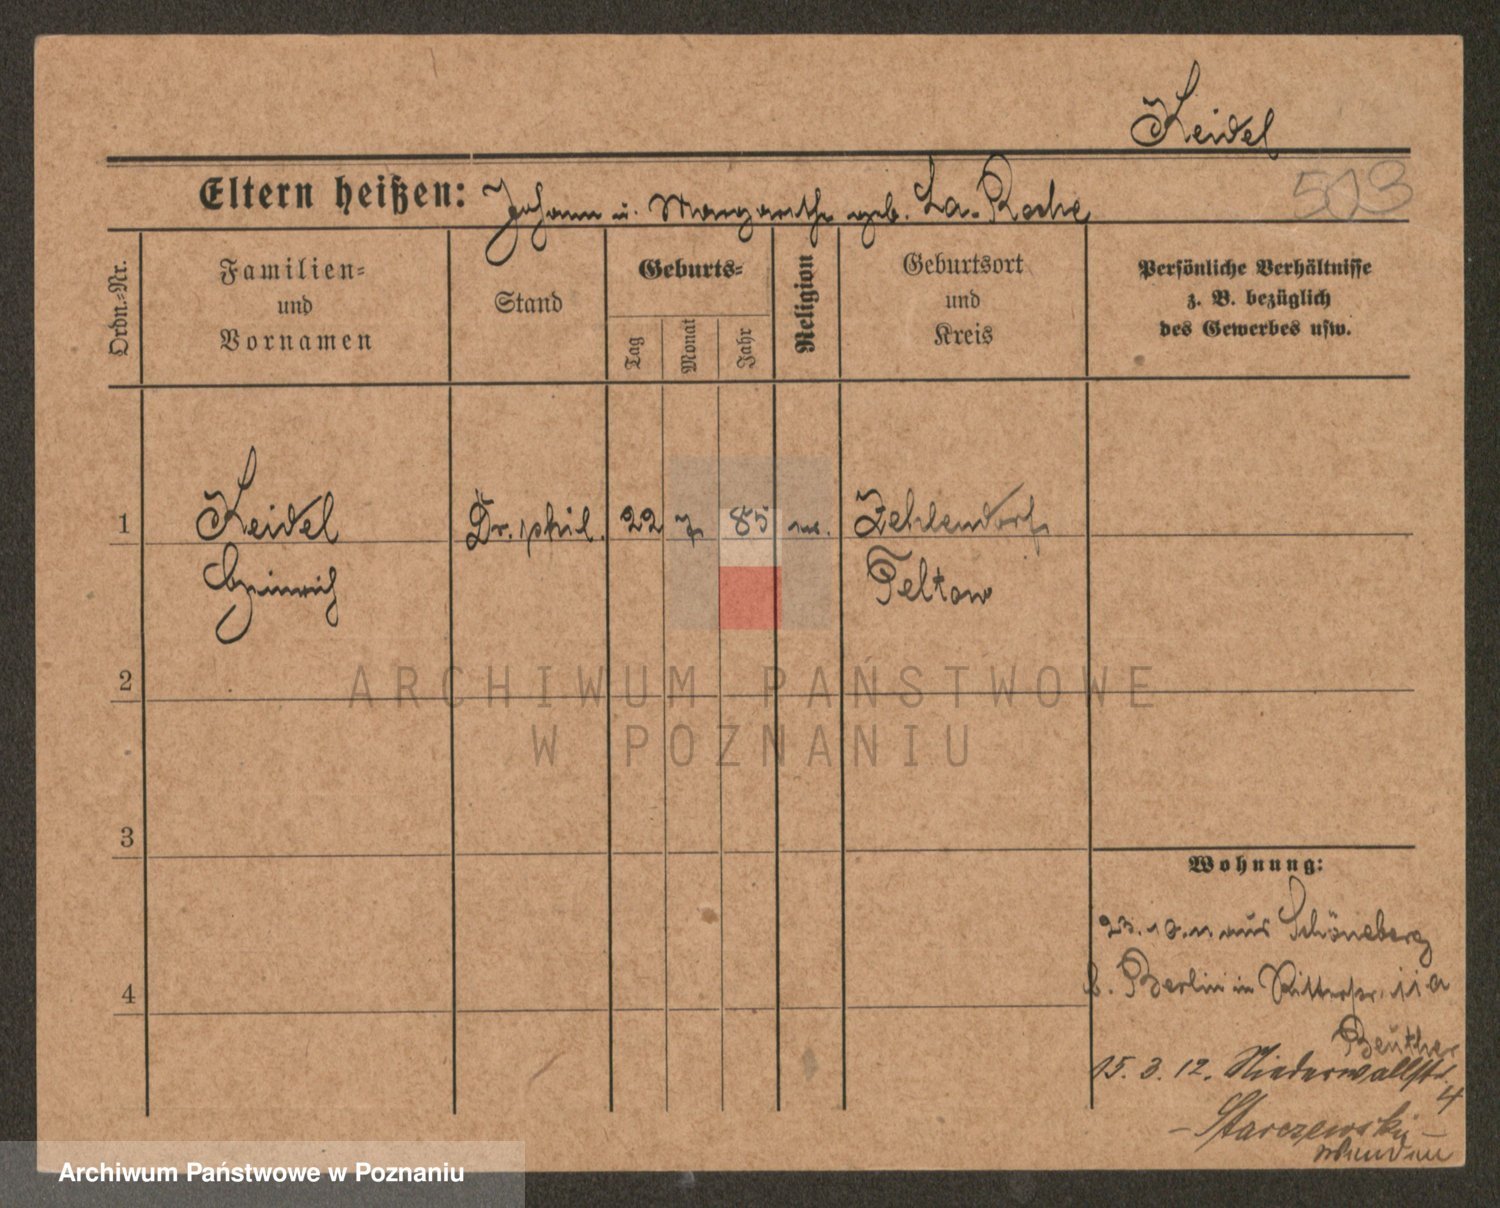 Keidel
503
Eltern heißen: Johann u. Margarethe geb. La-Roche
Ordn.-Nr.
Familien-
und
Vornamen
Stand
Geburts-
Tag
Monat
Jahr
Religion
Geburtsort
und
Kreis
Persönliche Verhältnisse
z. B. bezüglich
des Gewerbes usw.
1
Keidel
Heinrich
Dr. phil.
22
7
85
Zehlendorf
Teltow
2
ARCHIWUM PAŃSTWOWE
W POZNANIU
3
Wohnung:
aus Schöneberg
b. Berlin in Ritterstr. 11a
4
Beuther
15. 3. 12. Niederwallstr.
4
– Starczewski –
Archiwum Państwowe w Poznaniu